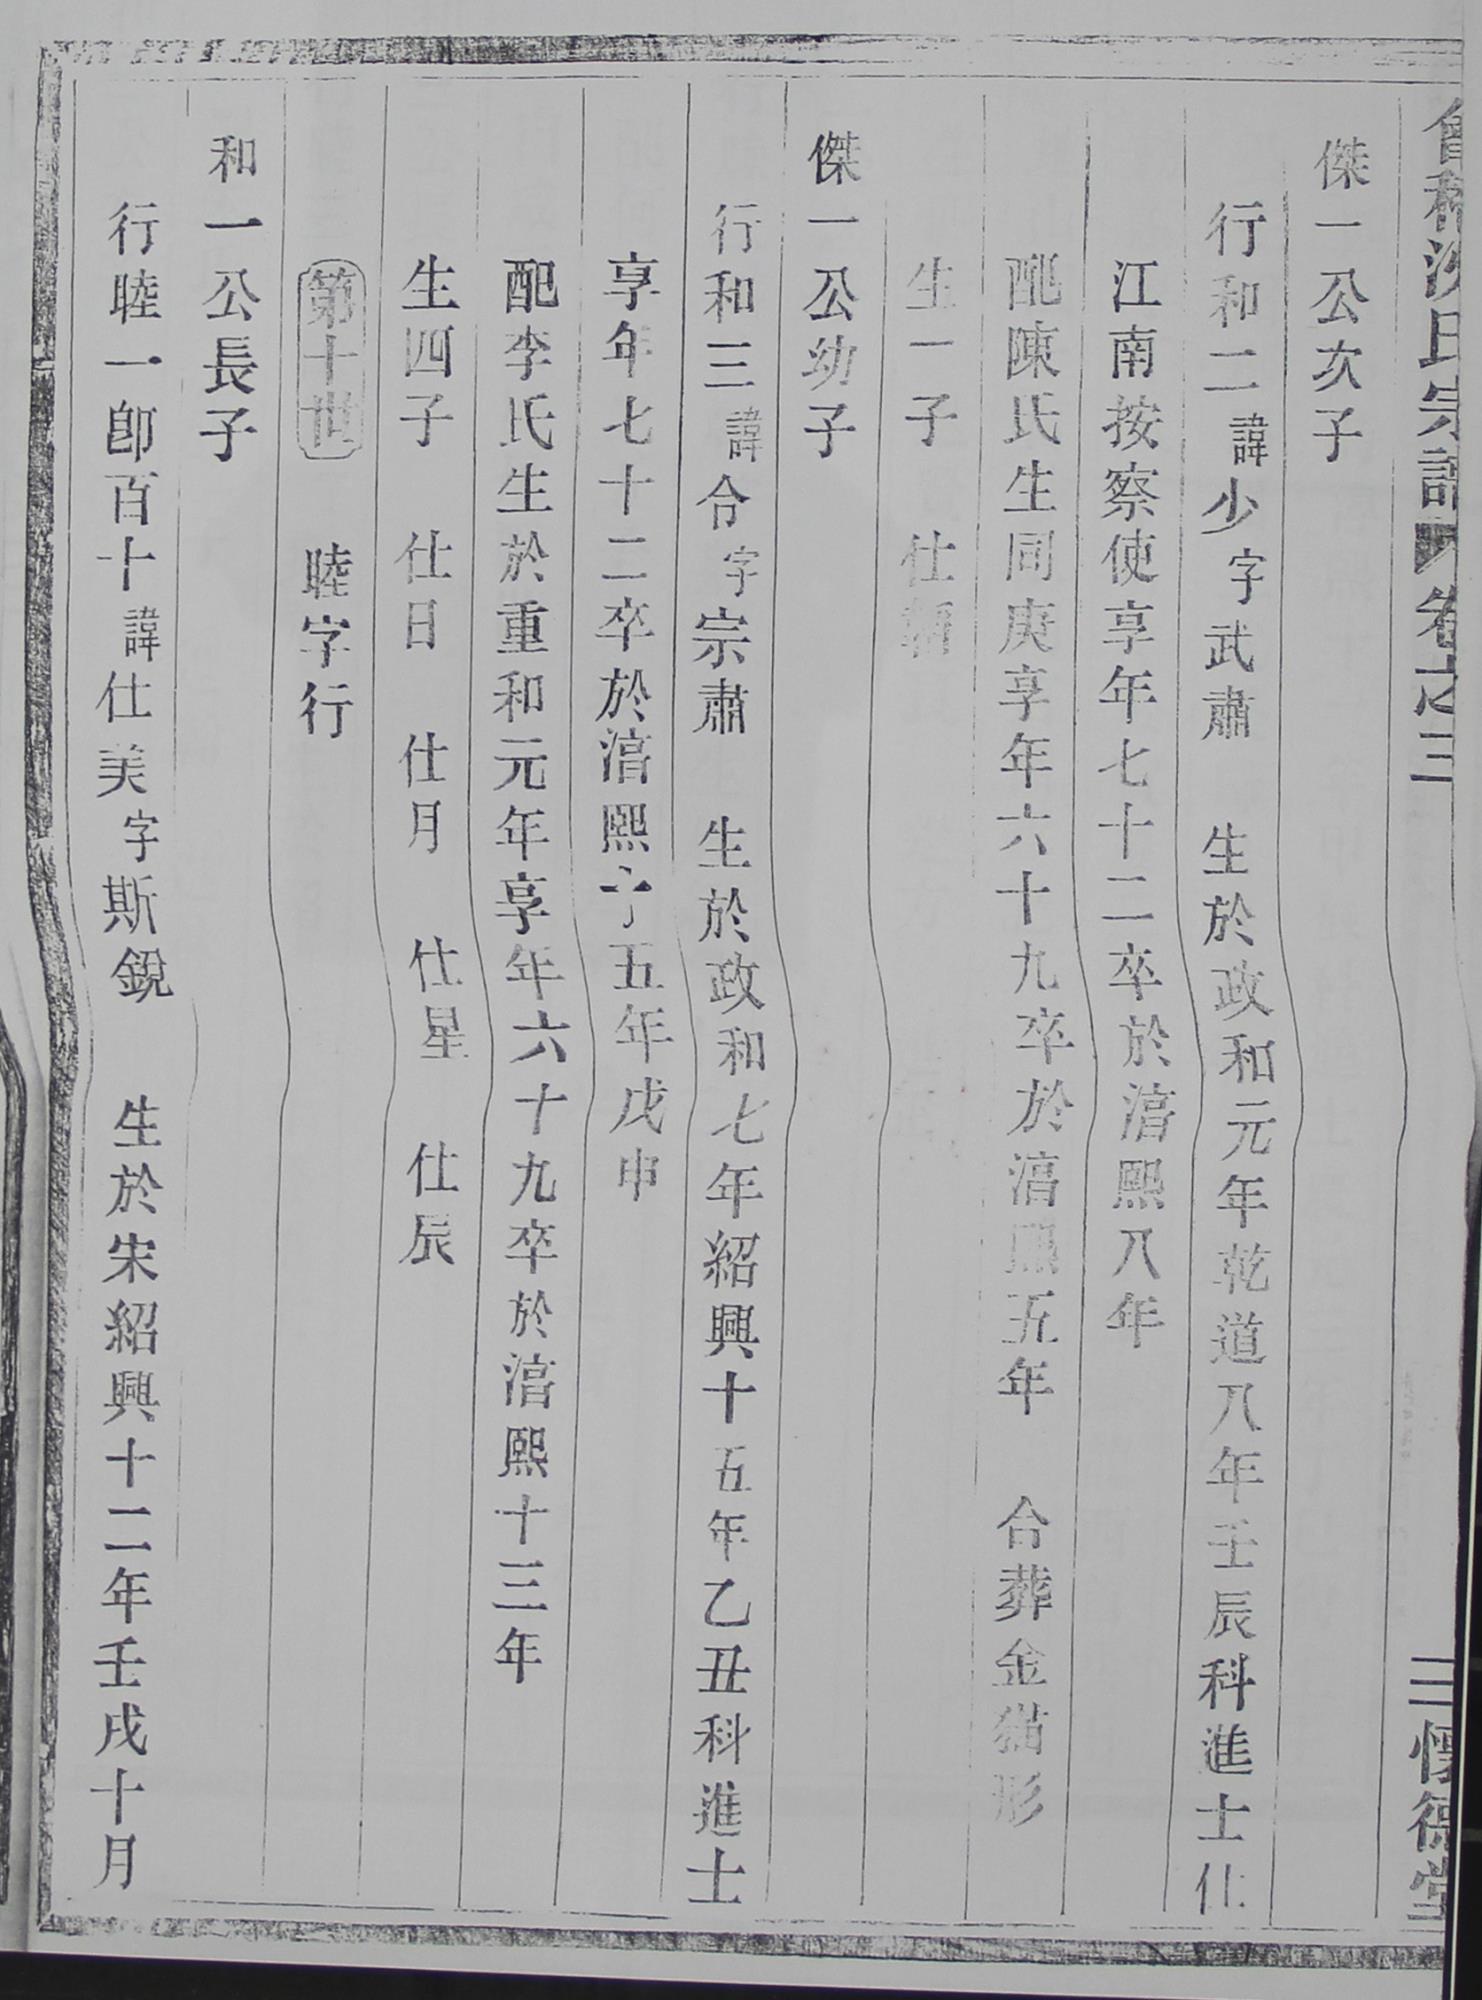 會稽沈氏宗譜 卷之三 二 懷德堂
傑一公次子
行和二諱少字武肅 生於政和元年乾道八年壬辰科進士仕
江南按察使享年七十二卒於淯熙八年
配陳氏生同庚享年六十九卒於淯熙五年 合葬金猫形
生一子 仕
傑一公幼子
行和三諱令字宗肅 生於政和七年紹興十五年乙丑科進士
享年七十二卒於淯熙十五年戊申
配李氏生於重和元年享年六十九卒於淯熙十三年
生四子 仕日 仕月 仕星 仕辰
第十世 睦字行
和一公長子
行睦一卽百十諱仕美字斯銳 生於宋紹興十二年壬戌十月